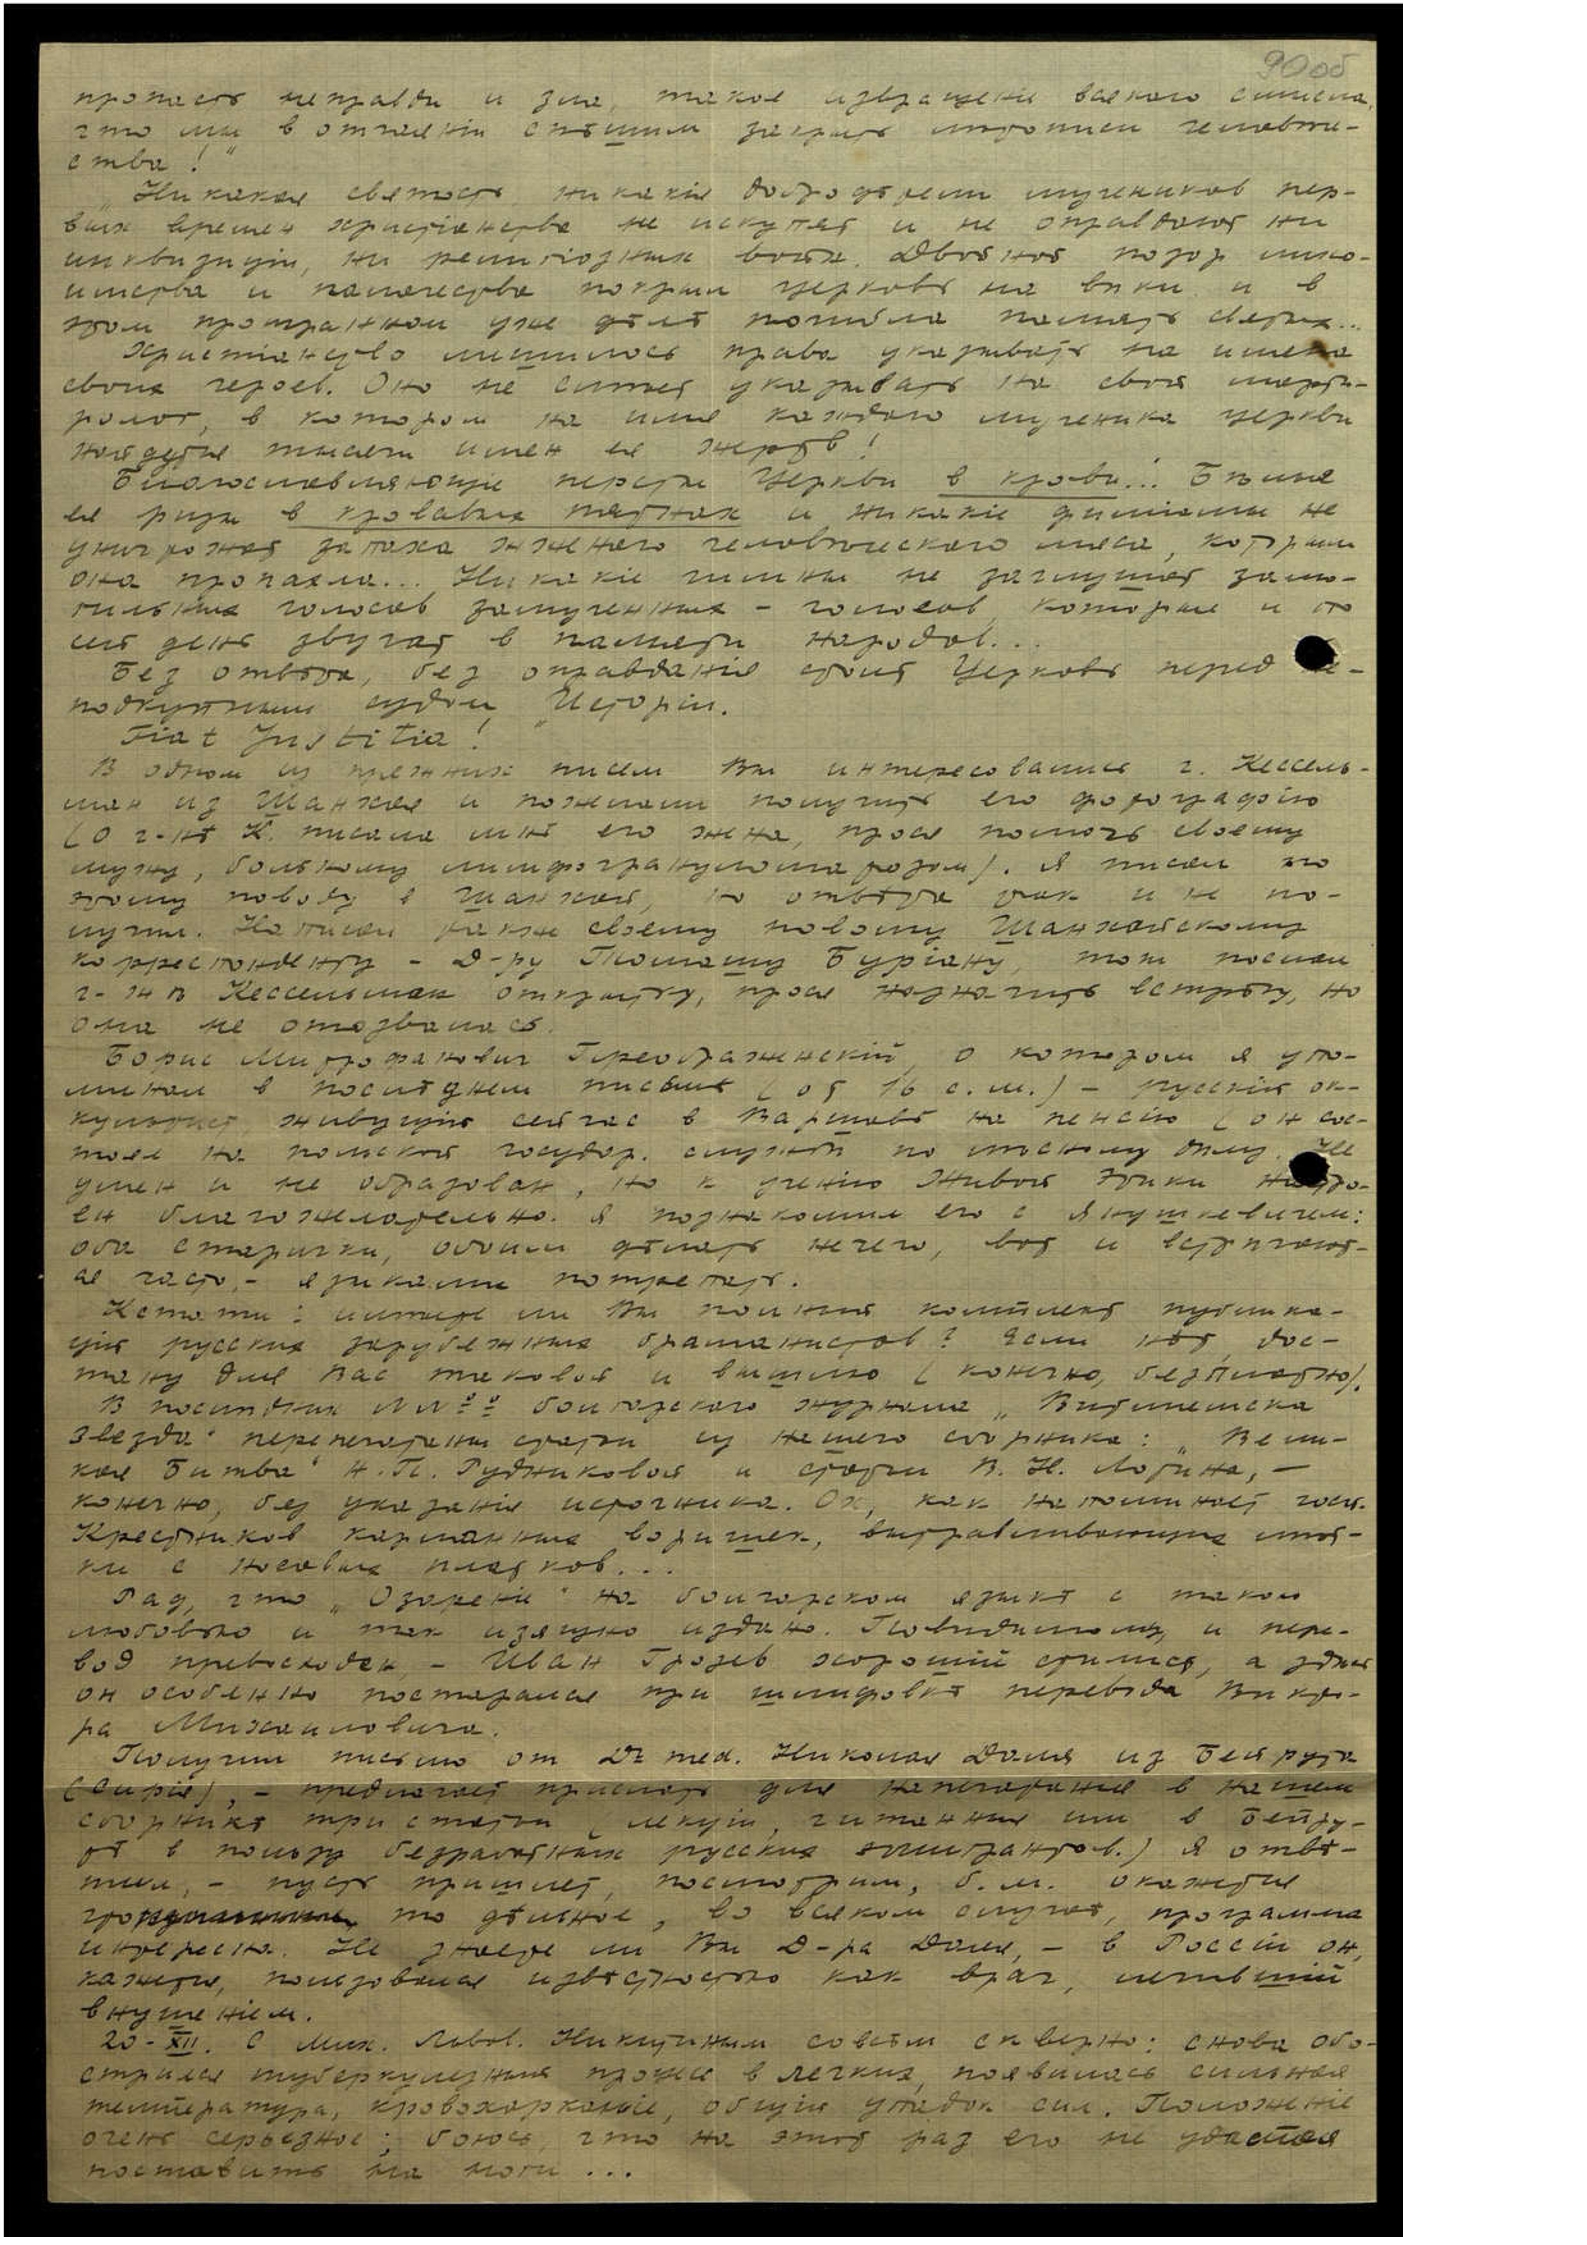 90об
пропасть неправды и зла, такое извращение всякого смысла,
что мы в отчаяніи спѣшим закрыть лѣтописи человѣче-
ства!"
„Никакая святость никакія добродѣтели мучеников пер-
вых времен христіанства не искупят и не оправдают ни
инквизиціи, ни религіозных войн. Двойной позор лико-
имства и палачества покрыл церковь на вѣки и в
этом проигранном уже дѣлѣ погибла память святых...
Христіанство лишилось права указывать на имена
своих героев. Оно не смѣет указывать на свой марти-
ролог, в котором на имя каждаго мученика церкви
найдутся тысячи имен ея жертв!
Благословляющіе персты Церкви в крови!.. Бѣлые
ея ризы в кровавых пятнах и никакіе фиміамы не
уничтожат запаха жженого человѣческаго мяса, которым
она пропахла... Никакіе гимны не заглушат замо-
гильных голосов замученных – голосов, которые и по
сей день звучат в памяти народов...
Без отвѣта, без оправданія стоит Церковь перед не-
подкупным судом Исторіи."
Fiat Justitia!
В одном из прежних писем Вы интересовались г. Кессель-
ман из Шанхая и пожелали получить его фотографію
(О г-нѣ К. писала мнѣ его жена, прося помочь своему
мужу, больному лимфогрануломатозом). Я писал по
этому поводу в Шанхай, но отвѣта так и не по-
лучил. Написал также своему новому Шанхайскому
корреспонденту – Д-ру Томашу Буріану, тот послал
г-жѣ Кессельман открытку, прося назначить встрѣчу, но
она не отозвалась.
Борис Митрофанович Преображенскій, о котором я упо-
минал в послѣднем письмѣ (от 16 с.м.) – русскій ок-
культист, живущій сейчас в Варшавѣ на пенсію (он сос-
тоял на польской государ. службѣ по                  Не
умен и не образован, но к ученію Живой Этики настро-
ен благожелательно. Я познакомил его с Янушкевичем:
оба старички, обоим дѣлать нечего, вот и встрѣчают-
ся часто, – языками потрепать.
Кстати: имѣете ли Вы полный комплект публика-
цій русских зарубежных браманистов? Если нѣт, дос-
тану для Вас таковой и вышлю (конечно, безплатно).
В послѣдних №№ болгарского журнала „Витлиемска
Звезда" перепечатаны статьи из нашего сборника: „Вели-
кая Битва" Н. П. Рудниковой и статьи В. Н. Лотина, –
конечно, без указанія источника. Ох, как напоминает госп.
Крестников карманных воришек, вытравливающих мѣт-
ки с носовых платков...
Рад, что „Озареніе" на болгарском языкѣ с такой
любовью и так изящно издано. Повидимому, и пере-
вод превосходен, – Иван Грозев хорошій стилист, а здѣсь
он особенно постарался при шлифовкѣ перевода Викто-
ра Михайловича.
Получил письмо от Dr med. Николая Даля из Бейрута
(Сирія), – предлагает прислать для напечатанія в нашем
сборникѣ три статьи (лекціи, читанныя им в Бейру-
тѣ в пользу безработных русских эмигрантов.) Я отвѣ-
тил, – пусть пришлет, посмотрим, б.м. окажется
что      то дѣльное, во всяком случаѣ, программа
интересна. Не знаете ли Вы Д-ра Даля, – в Россіи он,
кажется, пользовался извѣстностью как врач, лѣчившій
внушеніем.
20-XII. С Мих. Львов. Никитиным совсѣм скверно: снова обо-
стрился туберкулезный процесс в легких, появилась сильная
температура, кровохарканье, общій упадок сил. Положеніе
очень серьезное; боюсь, что на этот раз его не удастся
поставить на ноги...